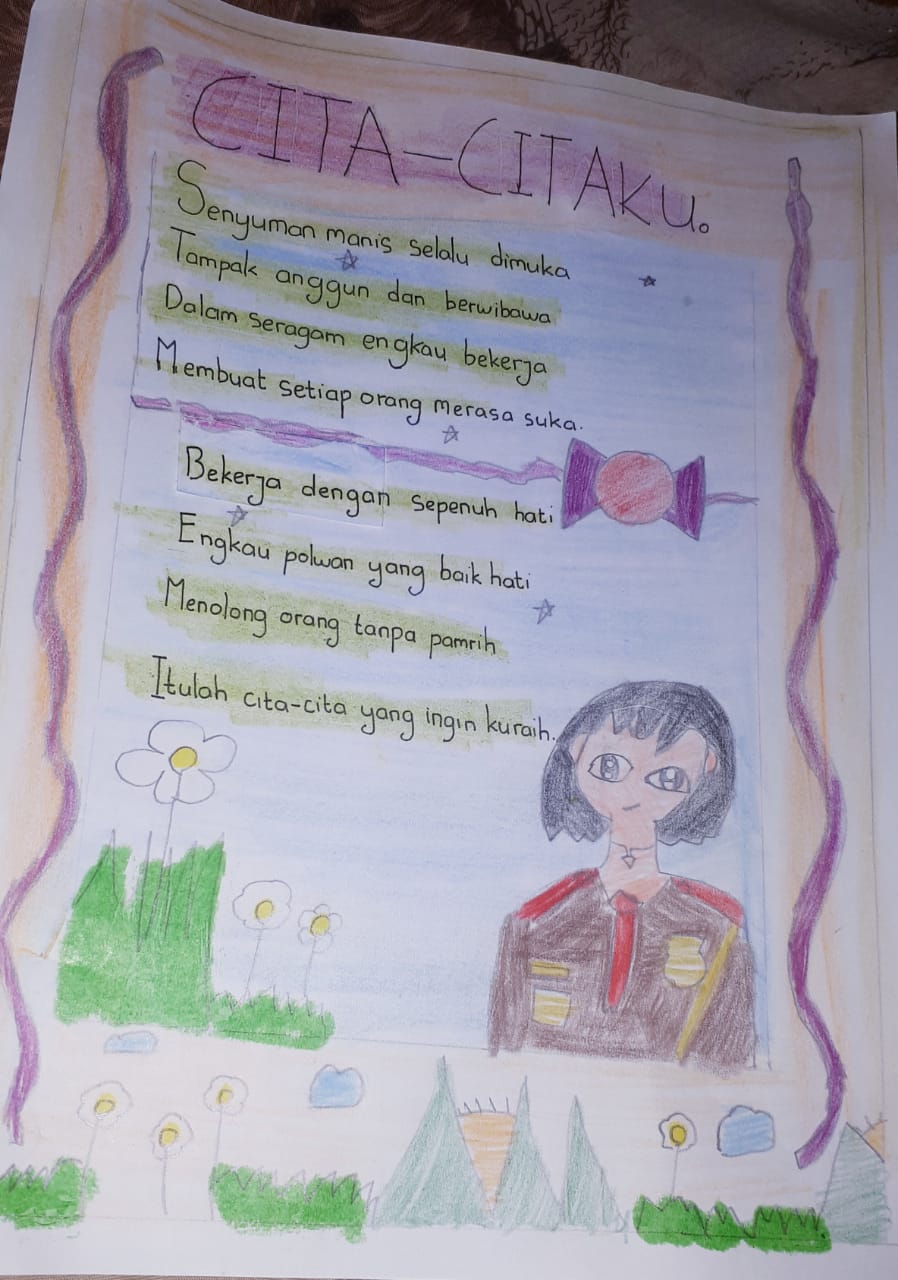 CITA-CITAKU.
Senyuman manis selalu dimuka
Tampak anggun dan berwibawa
Dalam seragam engkau bekerja
Membuat setiap orang merasa suka.
Bekerja dengan sepenuh hati
Engkau polwan yang baik hati
Menolong orang tanpa pamrih
Itulah cita-cita yang ingin kuraih.